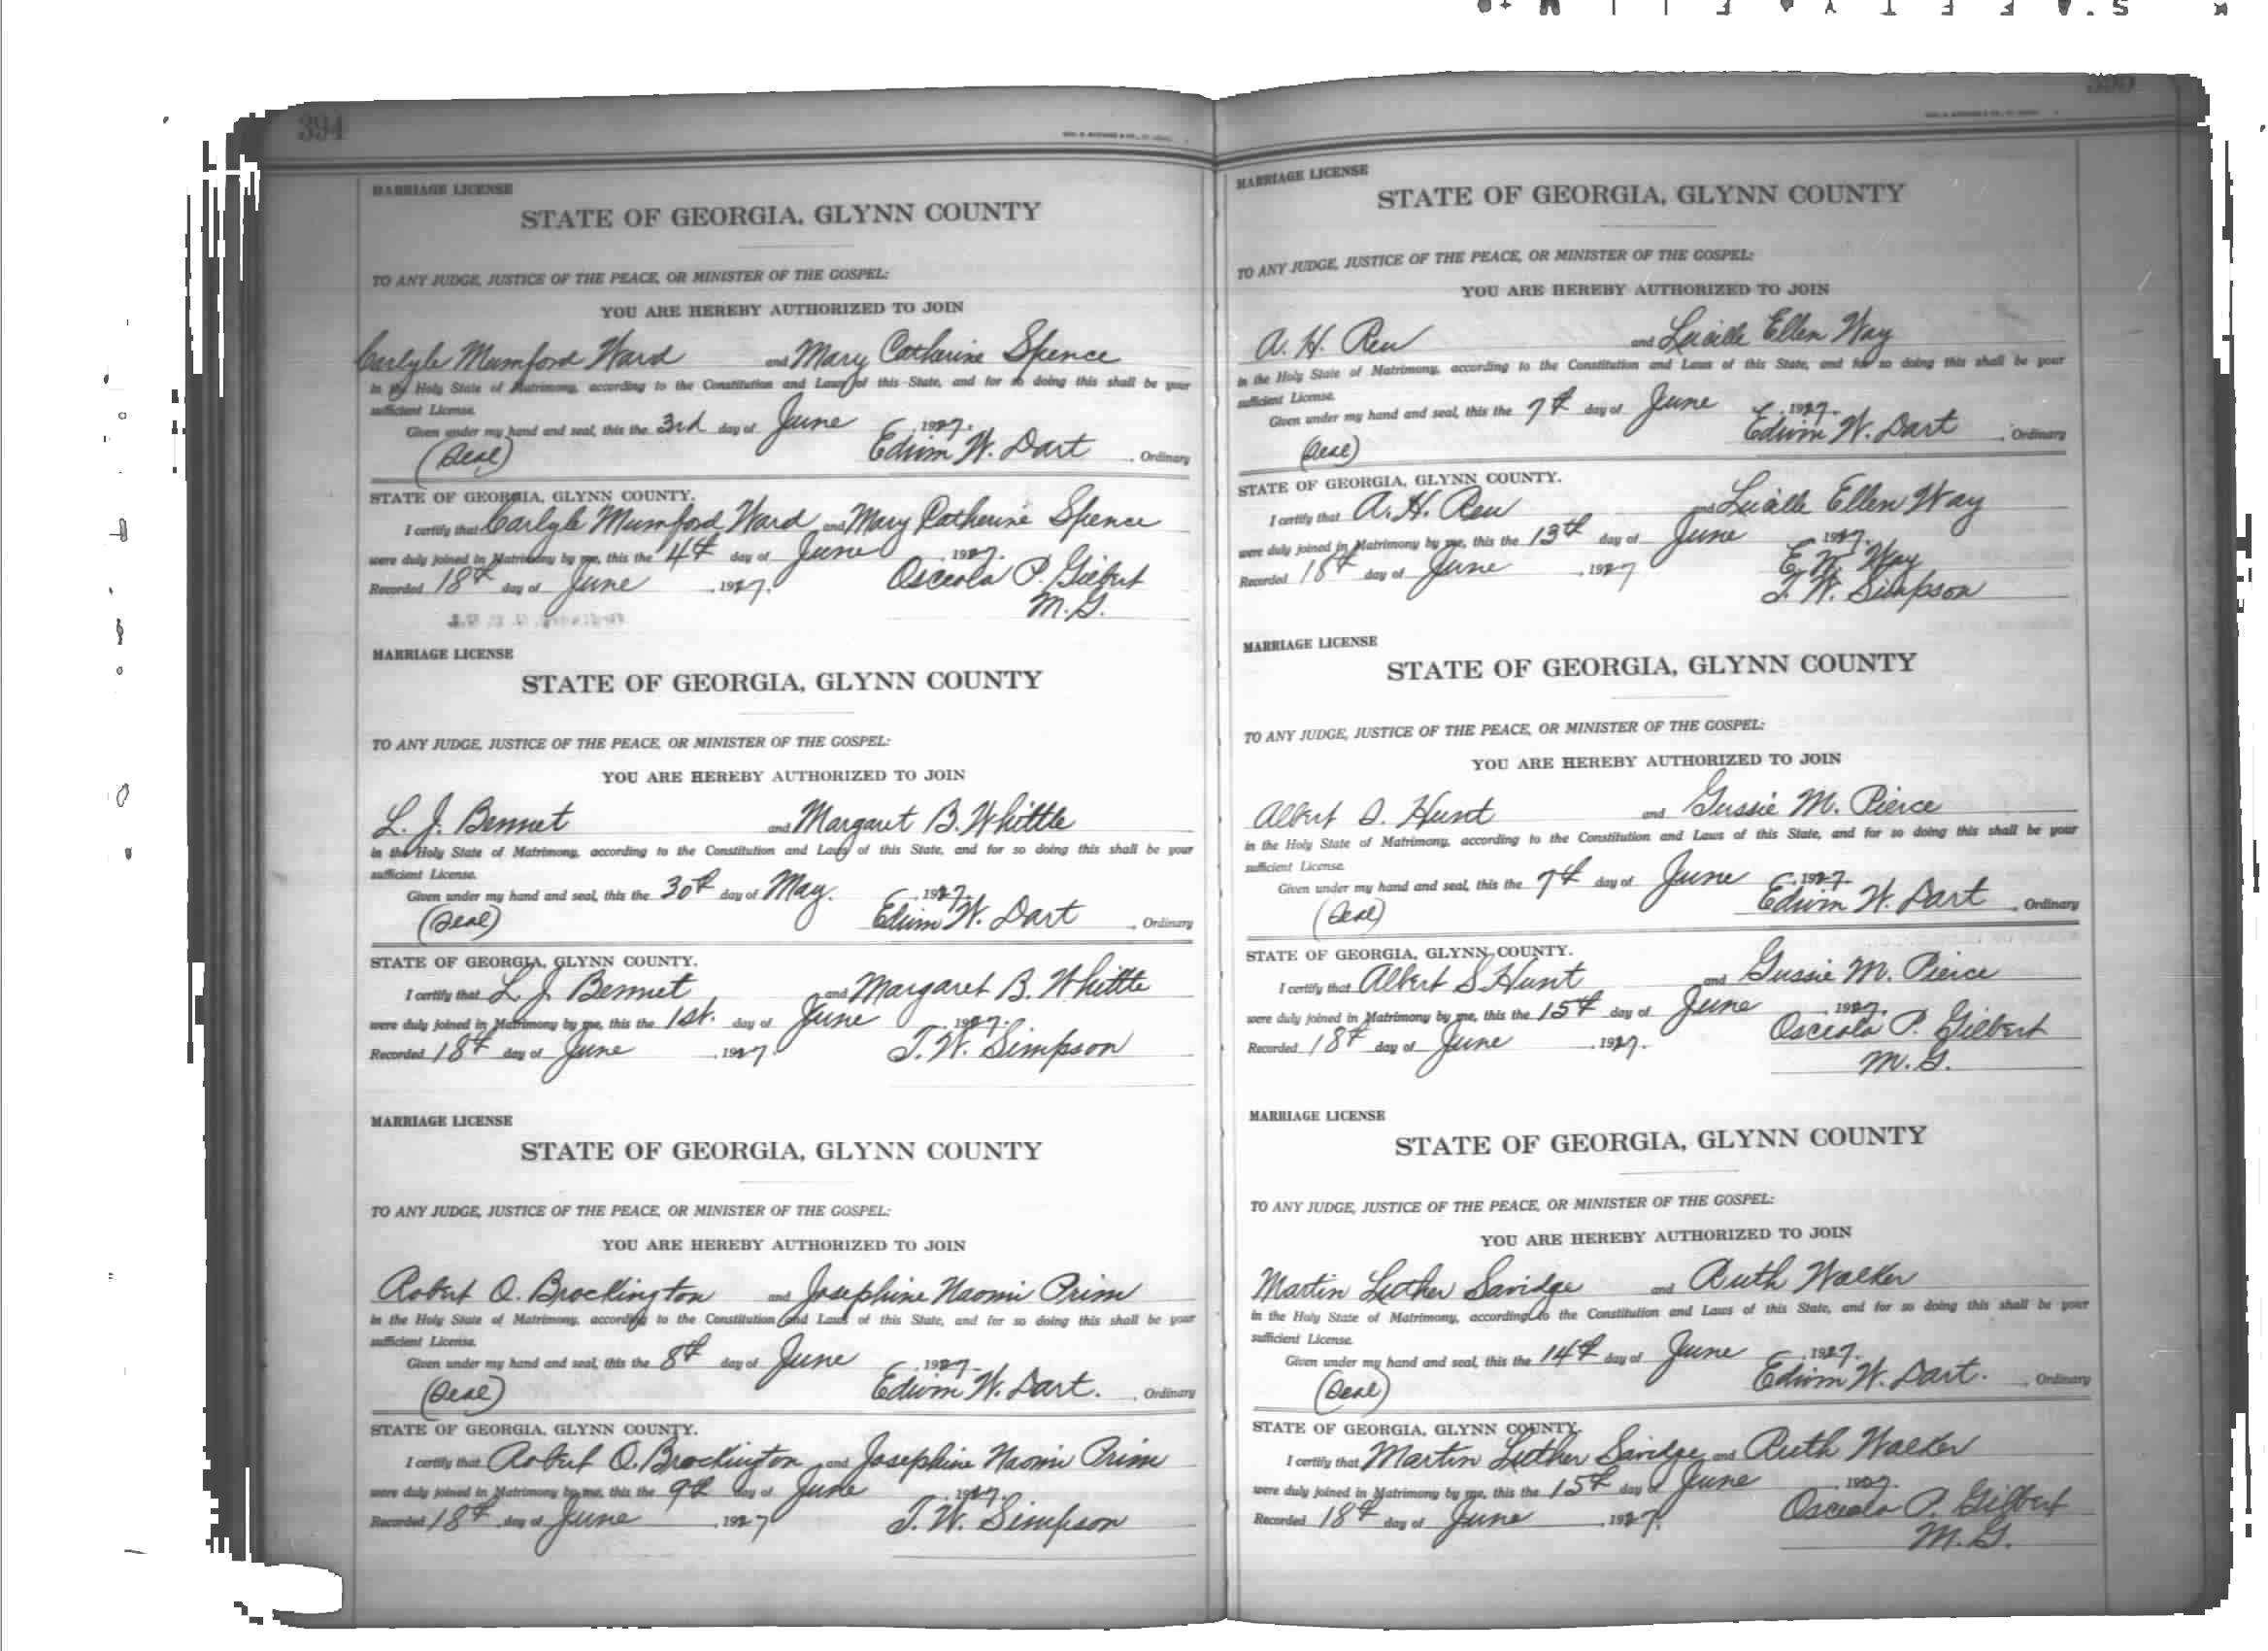 394
MARRIAGE LICENSE
STATE OF GEORGIA, GLYNN COUNTY
TO ANY JUDGE, JUSTICE OF THE PEACE, OR MINISTER OF THE GOSPEL:
YOU ARE HEREBY AUTHORIZED TO JOIN
Carlyle Mumford Ward and Mary Catherine Spence
in the Holy State of Matrimony, according to the Constitution and Laws of this State, and for so doing this shall be your
sufficient License.
Given under my hand and seal, this the 3rd day of June 1927.
(Seal) Edwin W. Dart, Ordinary
STATE OF GEORGIA, GLYNN COUNTY.
I certify that Carlyle Mumford Ward and Mary Catherine Spence
were duly joined in Matrimony by me, this the 4th day of June, 1927.
Recorded 18th day of June, 1927. Osceola P. Gilbert
M.G.
MARRIAGE LICENSE
STATE OF GEORGIA, GLYNN COUNTY
TO ANY JUDGE, JUSTICE OF THE PEACE, OR MINISTER OF THE GOSPEL:
YOU ARE HEREBY AUTHORIZED TO JOIN
L. J. Bennet and Margaret B. Whittle
in the Holy State of Matrimony, according to the Constitution and Laws of this State, and for so doing this shall be your
sufficient License.
Given under my hand and seal, this the 30th day of May. 1927.
(Seal) Edwin W. Dart, Ordinary
STATE OF GEORGIA, GLYNN COUNTY.
I certify that L. J. Bennet and Margaret B. Whittle
were duly joined in Matrimony by me, this the 1st. day of June, 1927.
Recorded 18th day of June, 1927. T. W. Simpson
MARRIAGE LICENSE
STATE OF GEORGIA, GLYNN COUNTY
TO ANY JUDGE, JUSTICE OF THE PEACE, OR MINISTER OF THE GOSPEL:
YOU ARE HEREBY AUTHORIZED TO JOIN
Robert O. Brockington and Josephine Naomi Prim
in the Holy State of Matrimony, according to the Constitution and Laws of this State, and for so doing this shall be your
sufficient License.
Given under my hand and seal, this the 8th day of June, 1927.
(Seal) Edwin W. Dart., Ordinary
STATE OF GEORGIA, GLYNN COUNTY.
I certify that Robert O. Brockington and Josephine Naomi Prim
were duly joined in Matrimony by me, this the 9th day of June, 1927.
Recorded 18th day of June, 1927 T. W. Simpson
MARRIAGE LICENSE
STATE OF GEORGIA, GLYNN COUNTY
TO ANY JUDGE, JUSTICE OF THE PEACE, OR MINISTER OF THE GOSPEL:
YOU ARE HEREBY AUTHORIZED TO JOIN
A. H. Reu and Lucille Ellen Way
in the Holy State of Matrimony, according to the Constitution and Laws of this State, and for so doing this shall be your
sufficient License.
Given under my hand and seal, this the 7th day of June, 1927.
(Seal) Edwin W. Dart, Ordinary
STATE OF GEORGIA, GLYNN COUNTY.
I certify that A. H. Reu and Lucille Ellen Way
were duly joined in Matrimony by me, this the 13th day of June 1927.
Recorded 18th day of June, 1927 E. W. Way
T. W. Simpson
MARRIAGE LICENSE
STATE OF GEORGIA, GLYNN COUNTY
TO ANY JUDGE, JUSTICE OF THE PEACE, OR MINISTER OF THE GOSPEL:
YOU ARE HEREBY AUTHORIZED TO JOIN
Albert S. Hunt and Gussie M. Pierce
in the Holy State of Matrimony, according to the Constitution and Laws of this State, and for so doing this shall be your
sufficient License.
Given under my hand and seal, this the 7th day of June, 1927.
(Seal) Edwin W. Dart, Ordinary
STATE OF GEORGIA, GLYNN COUNTY.
I certify that Albert S. Hunt and Gussie M. Pierce
were duly joined in Matrimony by me, this the 15th day of June, 1927.
Recorded 18th day of June, 1927. Osceola P. Gilbert
M.G.
MARRIAGE LICENSE
STATE OF GEORGIA, GLYNN COUNTY
TO ANY JUDGE, JUSTICE OF THE PEACE, OR MINISTER OF THE GOSPEL:
YOU ARE HEREBY AUTHORIZED TO JOIN
Martin Luther Savidge and Ruth Walker
in the Holy State of Matrimony, according to the Constitution and Laws of this State, and for so doing this shall be your
sufficient License.
Given under my hand and seal, this the 14th day of June, 1927.
(Seal) Edwin W. Dart., Ordinary
STATE OF GEORGIA, GLYNN COUNTY.
I certify that Martin Luther Savidge and Ruth Walker
were duly joined in Matrimony by me, this the 15th day of June, 1927.
Recorded 18th day of June, 1927. Osceola P. Gilbert
M.G.